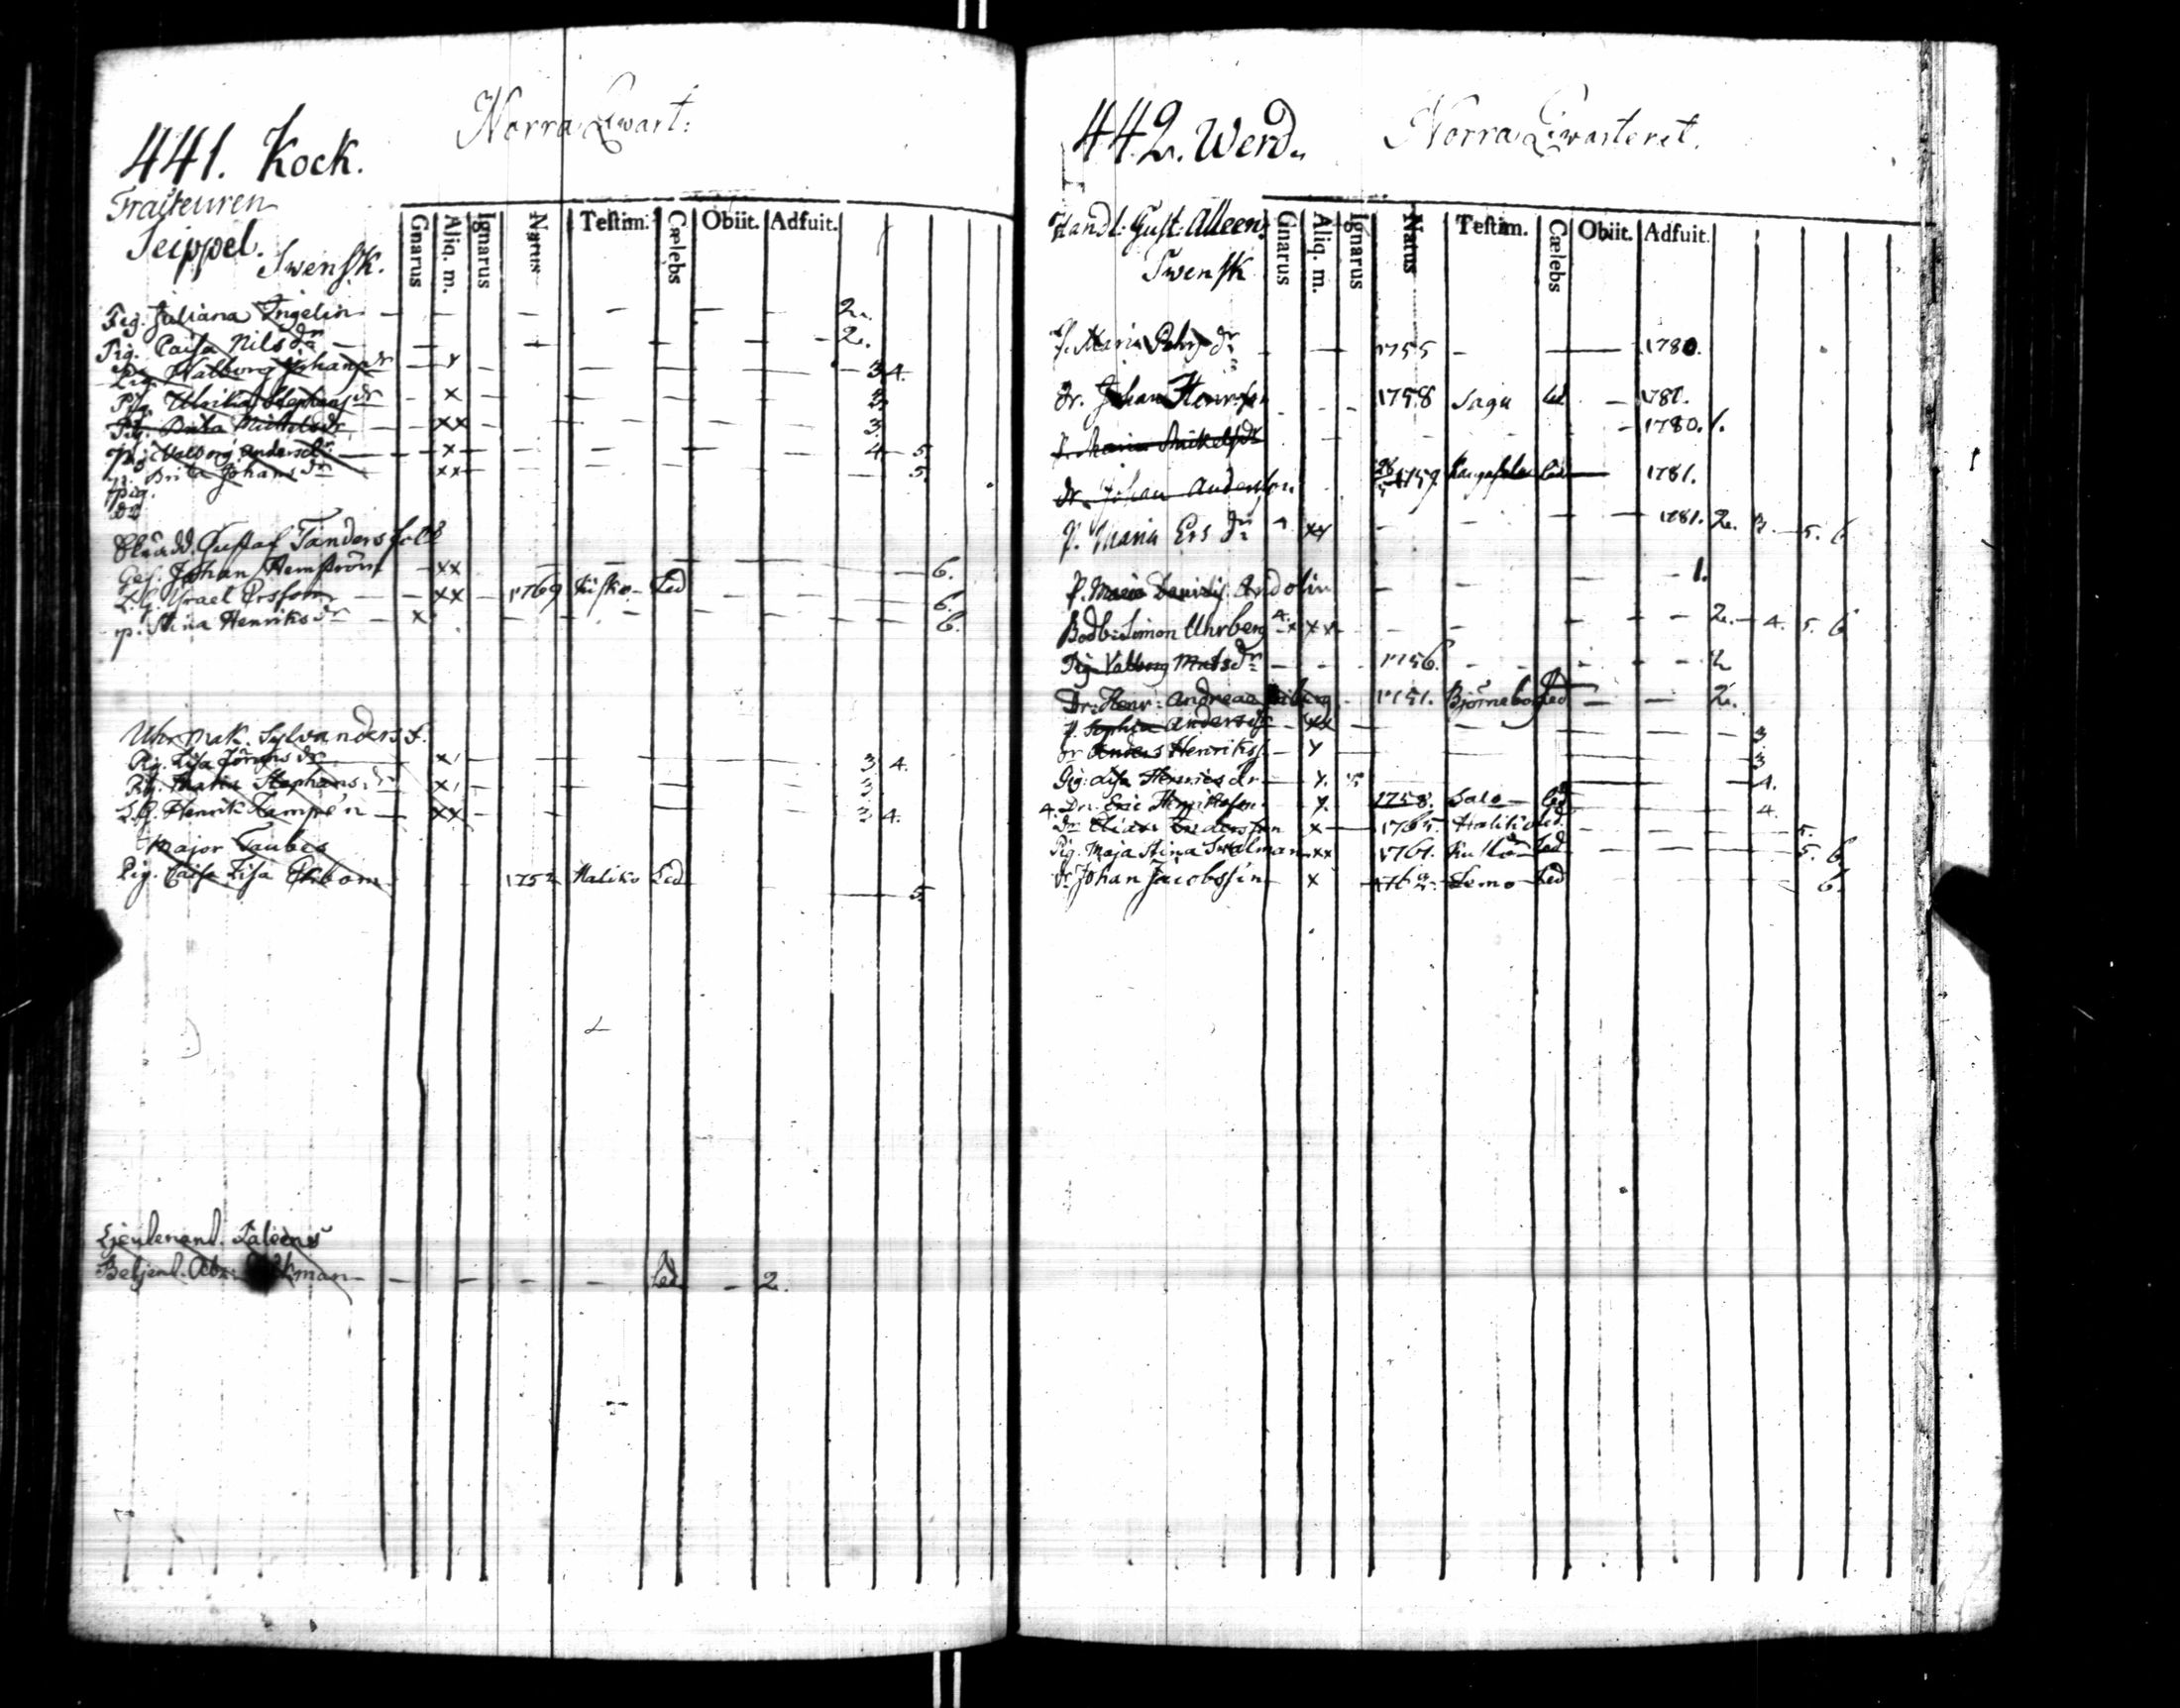 Norra Qwart:
441. Kock.
Traiteuren
Seippel.
Swensk.
Gnarus Aliq. m. Ignarus Natus Teſtim. Cælebs Obiit. Adfuit.
Pig. Juliana Ingelin - - - - - - 2.
Pig. Caisa Nils dr - - - - - - 2.
Pig. Valborg Johans dr - x - - - - - 3 4.
Pig. Ulrika Stephans dr - x - - - - 3.
Pig. Brita Mickels dr - xx - - - - 3.
Pig. Valborg Anders dr - x - - - - 4 - 5.
Pig. Brita Johans dr xx - - - - 5.
pig.
Skrädd. Gustaf Tanders folk
Ges. Johan Hemström - xx - - - - 6.
L. G. Israel Ersson - xx - 1769 Kisko - Led - - - 6.
p. Stina Henriks dr - x - - - - - 6.
Uhrmak. Sylvanders f.
Pig. Lisa Jörans dr x - - - - 3 4.
Pig. Maria Stephans dr x - - - - 3
L. G. Henrik Kempe'n - xx - - - - 3 4.
Major Taubes
Pig. Caisa Lisa Ekbom 1752 Haliko Led - - 5.
Lieutenant
Betjent. - - - - Led - 2.
Norra Qwarteret.
442. Werd.
Handl. Gust. Alleen.
Swensk
Gnarus Aliq. m. Ignarus Natus Teſtim. Cælebs Obiit. Adfuit.
P. Maria Pehrs dr - - 1755 - - 1780.
Dr. Johan Henrsson - - 1758 Sagu Led - 1781.
P. Maria Mickels dr - - - - 1780. 1.
dr. Johan Andersson 1759 Led - 1781.
P. Maria Ers dr xx - - - 1781. 2. 3. - 5. 6
P. Andolin - - - - 1.
Bodb: Simon Uhrberg - x xx - - - - 2. - 4. 5. 6
Pig Valborg Mats dr - - 1756. - - - - 2
Dr. Henr: Andreae - 1751. Björneborg Led - - 2.
P. Sophia Anders dr - xx - - - - 3
dr Anders Henrikss. - x - - - 3
Pig: Lisa Henrics dr - x. - - - 4.
4. Dr. Eric Henriksson - x. 1758. Salo - Led - 4.
Dr Elias Andersson x - 1765. Haliko Led. - - - 5.
Pig. Maja Stina Svalman xx 1761. Led - - - 5. 6
dr Johan Jacobsson - x Lemo - Led - - - 6.